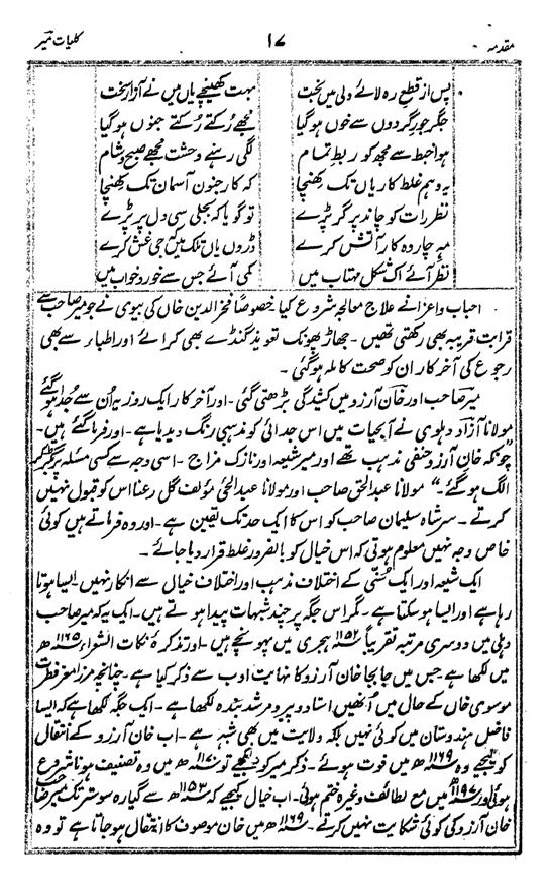 مقدمہ ۱۷ کلیات میر
پس از قطع رہ لائے دلی میں بخت بہت کھینچے یاں میں نے آزار سخت
جگر جور گردوں سے خوں ہو گیا مجھے رُکتے رُکتے جنوں ہو گیا
ہوا خبط سے مجھ کو ربط تمام لگی رہنے وحشت مجھے صبح و شام
یہ وہم غلط کاریاں تک کھنچا کہ کار جنوں آسمان تک کھنچا
نظر رات کو چاند پر گر پڑے تو گویا کہ بجلی سی دل پر پڑے
مہِ چاردہ کار آتش کرے ڈروں یاں تلک میں کہ جی غش کرے
نظر آئے اک شکل مہتاب میں کمی آئے جس سے خور و خواب میں
احباب و اعزا نے علاج معالجہ شروع کیا خصوصاً فخر الدین خاں کی بیوی نے جو میر صاحب سے
قرابت قریبہ بھی رکھتی تھیں ۔ جھاڑ پھونک تعویذ گنڈے بھی کرائے اور اطباء سے بھی
رجوع کی آخر کار ان کو صحت کاملہ ہو گئی ۔
میر صاحب اور خان آرزو میں کشیدگی بڑھتی گئی ۔ اور آخر کار ایک روز یہ اُن سے جُدا ہو گئے
مولانا آزاد دہلوی نے آبحیات میں اس جدائی کو مذہبی رنگ دیدیا ہے ۔ اور فرما گئے ہیں ۔
"چونکہ خان آرزو حنفی مذہب تھے اور میر شیعہ اور نازک مزاج ۔ اسی وجہ سے کسی مسئلہ پر بگڑ کر
الگ ہو گئے ۔" مولانا عبدالحق صاحب اور مولانا عبدالحئی مؤلف گل رعنا اس کو قبول نہیں
کرتے ۔ سر شاہ سلیمان صاحب کو اس کا ایک حد تک یقین ہے ۔ اور وہ فرماتے ہیں کوئی
خاص وجہ نہیں معلوم ہوتی کہ اس خیال کو بالضرور غلط قرار دیا جائے ۔
ایک شیعہ اور ایک سُنی کے اختلاف مذہب اور اختلاف خیال سے انکار نہیں ۔ ایسا ہوتا
رہا ہے اور ایسا ہو سکتا ہے ۔ مگر اس جگہ پر چند شبہات پیدا ہوتے ہیں ۔ ایک یہ کہ میر صاحب
دہلی میں دوسری مرتبہ تقریباً ۱۱۵۲ ہجری میں پہونچے ہیں ۔ اور تذکرۂ نکات الشعراء ۱۱۶۵ھ
میں لکھا ہے جس میں جابجا خان آرزو کا نہایت ادب سے ذکر کیا ہے ۔ چنانچہ مرزا معز فطرت
موسوی خاں کے حال میں اُنھیں استاد و پیر و مرشد بندہ لکھا ہے ۔ ایک جگہ لکھا ہے کہ ایسا
فاضل ہندوستان میں کوئی نہیں بلکہ ولایت میں بھی شبہ ہے ۔ اب خان آرزو کے انتقال
کو لیجیے وہ ۱۱۶۹ھ میں فوت ہوئے ۔ ذکر میر کو دیکھیے تو میں وہ تصنیف ہونا شروع
ہوئی اور ۱۱۹۷ھ میں مع لطائف وغیرہ ختم ہوئی ۔ اب خیال کیجیے کہ ۱۱۵۳ھ سے گیارہ سو ستر تک میر صاحب
خان آرزو کی کوئی شکایت نہیں کرتے ۔ ۱۱۶۹ھ میں خان موصوف کا انتقال ہو جاتا ہے تو وہ